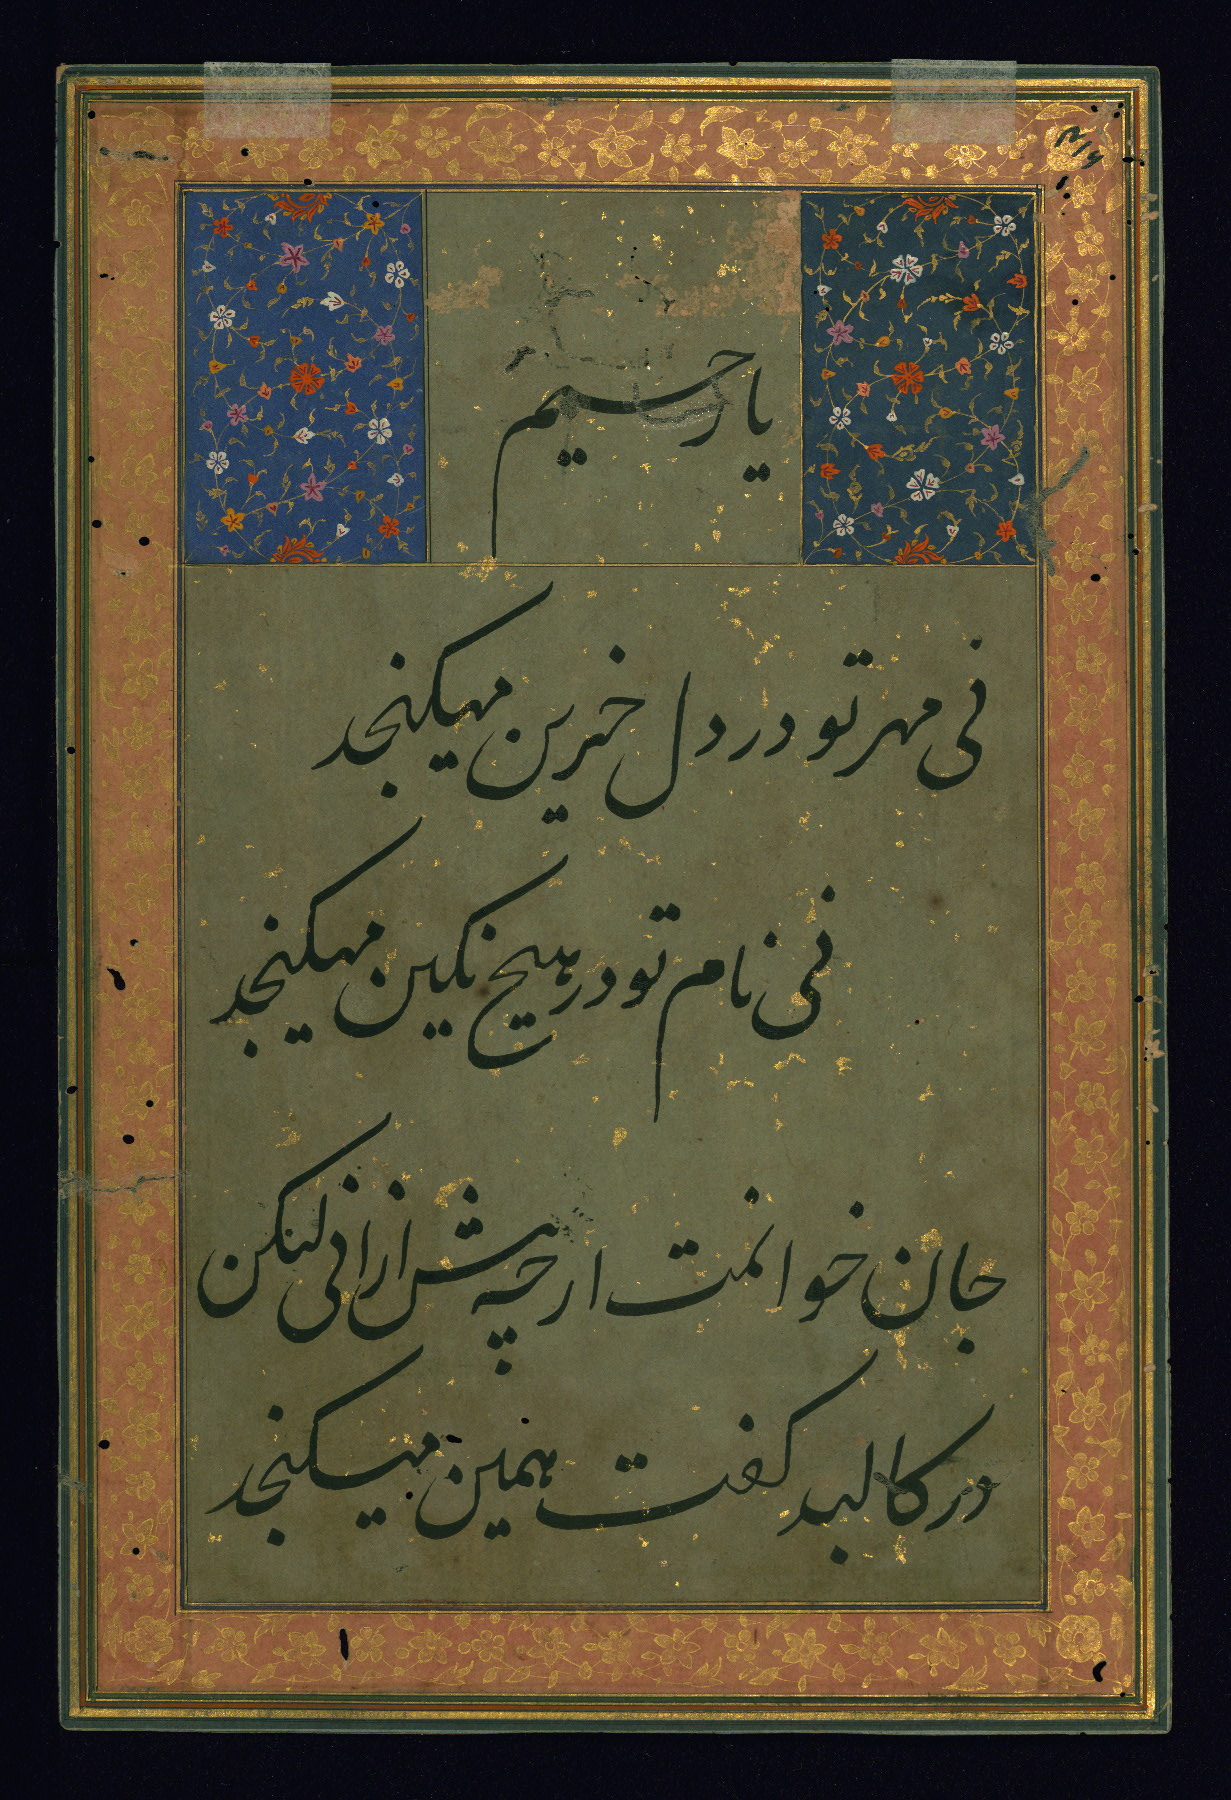 یا رحیم
نی مهر تو در دل حزین میکنجد
نی نام تو در هیچ نکین میکنجد
جان خوانمت ار چه بیش از انی لیکن
در کالبد کفت همین میکنجد